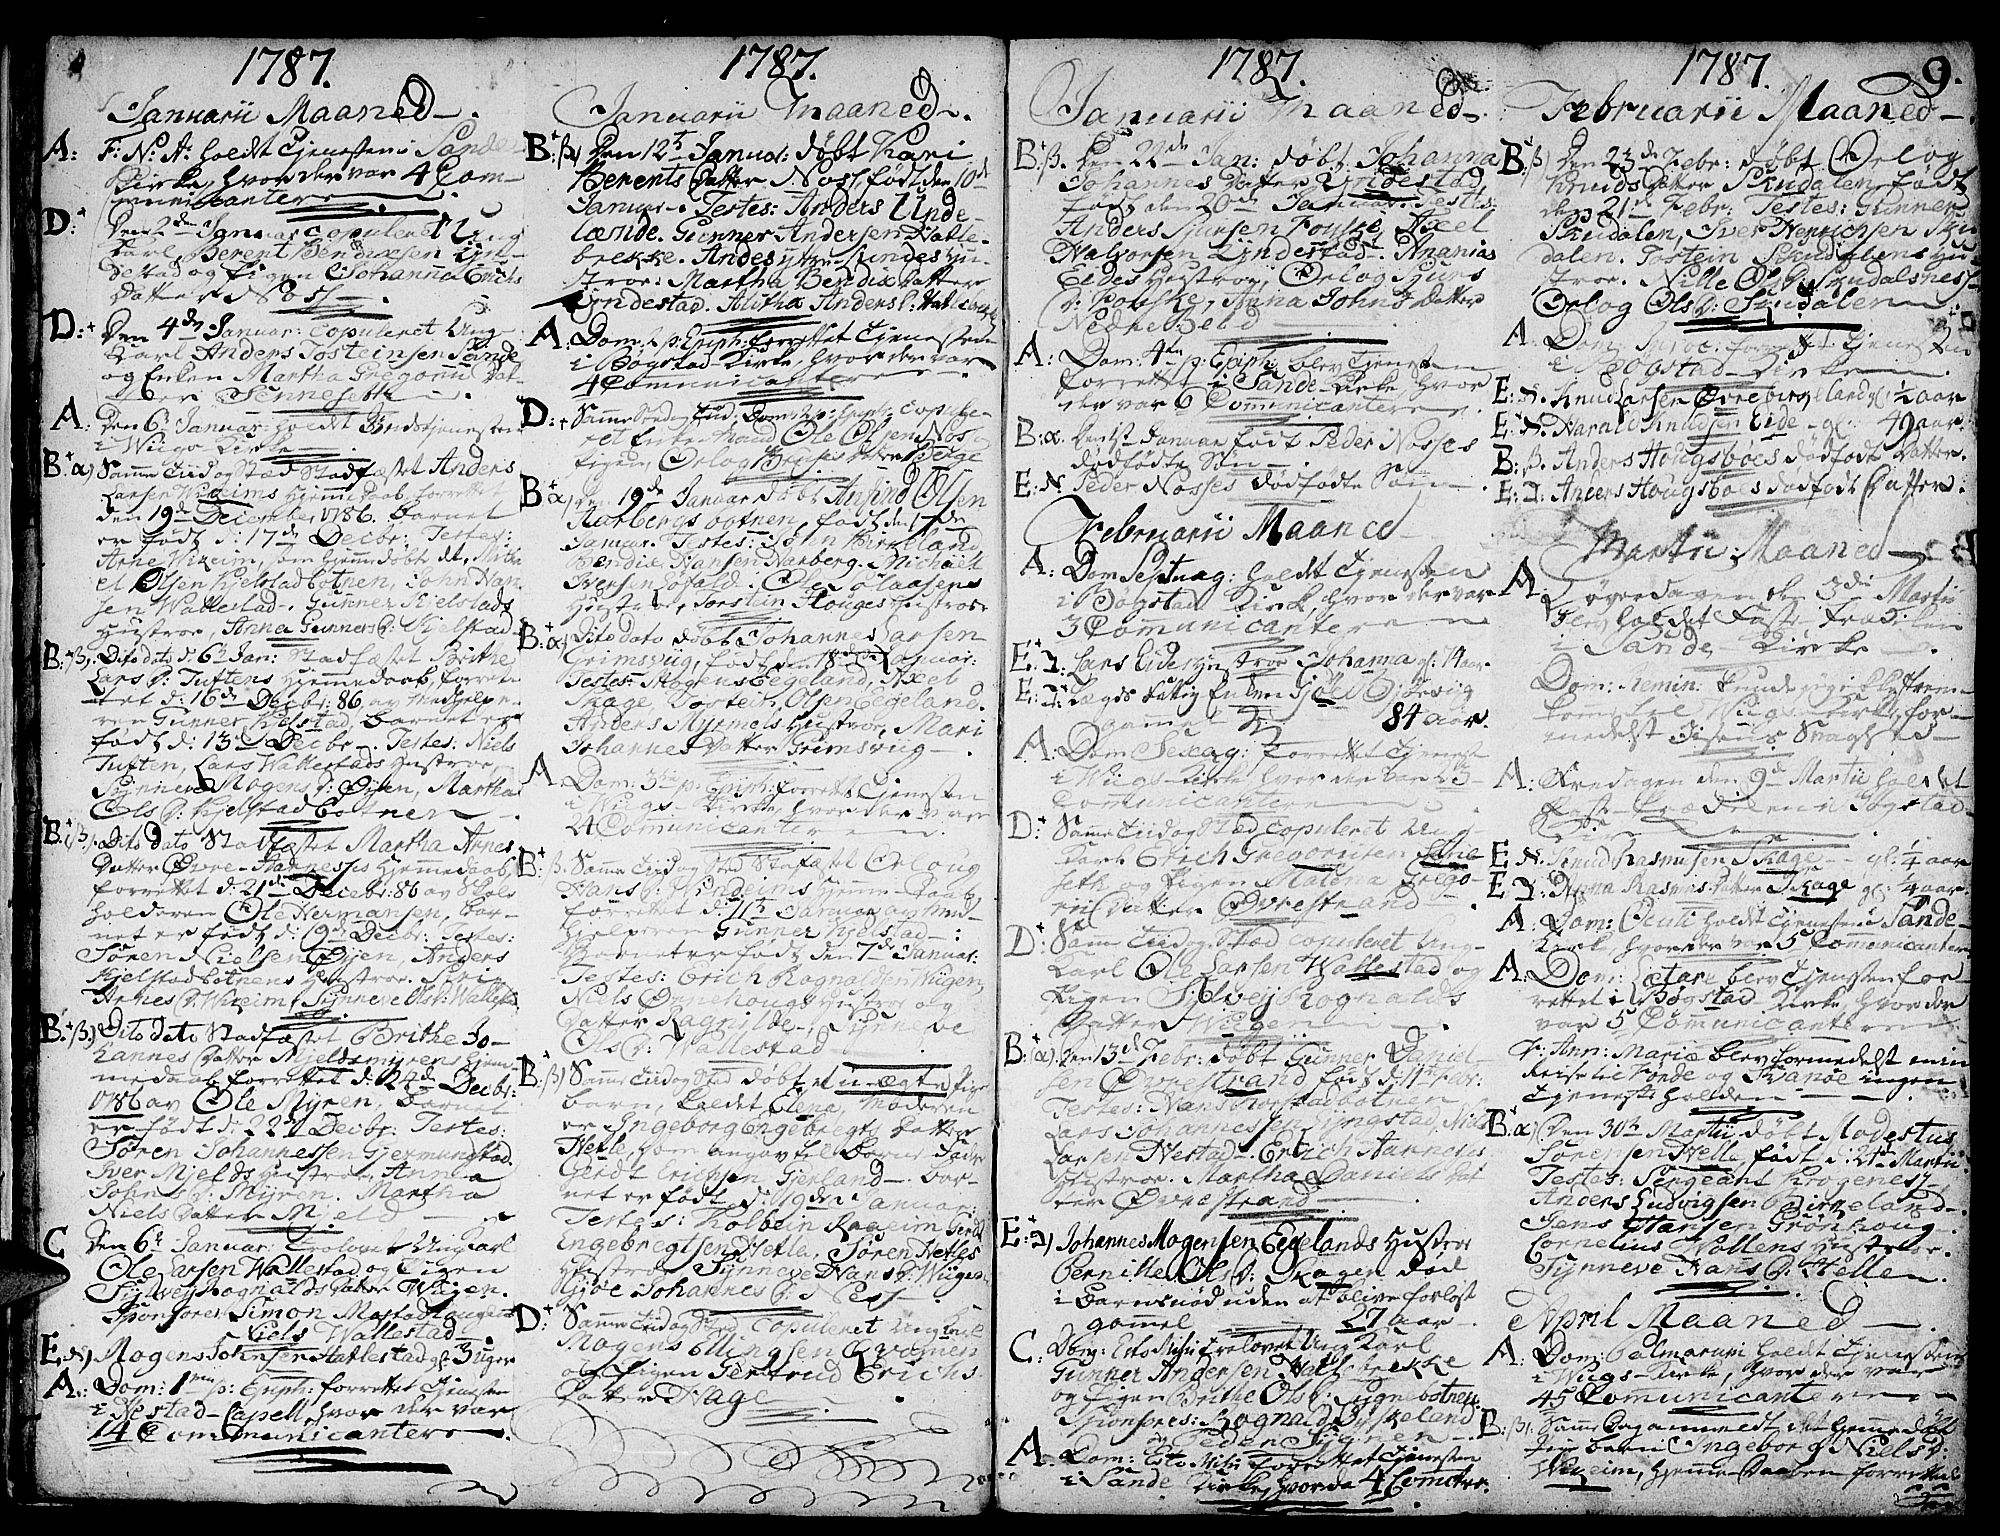 1787.
Januarii Maaned.
A: F: N: A: holdt Tjenesten i Sande
Kirke, hvor der var 4 Com-
municantere.
D: Den 2de Januar copuleret Ung
Karl Berent Bendixsen Lin-
destad og Pigen Johanna Erichs
Datter Noss.
D: Den 4de Januar: copuleret Ung
Karl Anders Tosteinsen Sande
og Enken Martha Gregorii Dat-
ter Tenneseth.
A: Den 6t Januar: holdt Tjenesten
i Wiigs Kirke.
B: α) Samme Tiid og Stæd Stadfæstet Anders
Larsen Wixeims hjemmedaab, forrettet
den 19de December 1786. Barnet
er født d: 17de Decbr: Testes:
Arne Wixeim, som hjemmedøbte det, Mich-
el Olsen Kjelstadbotnen, John Han-
sen Wallestad. Gunner Kjelstads
Hustroe, Anna Gunners D: Kjelstad.
B: β) Dito dato d: 6t Jan: Stadfæstet Brithe
Lars D: Tuftens hjemmedaab, forret-
tet d: 16de Decbr: 86 av Medhjelpe-
ren Gunner Kjelstad, Barnet er
født d: 13de Decbr: Testes: Niels
Tuften, Lars Wallestads Hustroe,
Synneve Mogens D: Øyen, Martha
Ols D: Kjelstadbotnen.
B: β) Dito Dato Stadfæstet Martha Arnes
Datter Øvre-Stavnes hjemmedaab,
forrettet d: 21de Decbr: 86 av Skole
holderen Ole Hermansen, Bar-
net er født d: 19de Decbr: Testes:
Søren Nielsen Øyen, Anders
Kjelstadbotnens Hustroe. Siri
Arnes D: Wixeim, Synneve Ols D: Wallest:
B: β) Dito dato Stadfæstet Brithe Jo-
hannes Datter Mjeldsmyrens hjem-
medaab forrettet d: 24de Decbr:
1786 av Ole Myren, Barnet
er født d: 22de Decbr: Testes:
Søren Johannessen Gjermundstad.
Iver Mjelds Hustroe. Anna
Johns D: Myren. Martha
Niels Datter Mjeld.
C Den 6t Januar: Trolovet Ung Karl
Ole Larsen Wallestad og Pigen
Sylvej Rognalds Datter Wiigen.
Sponsores Simon Mastadhougen
Niels Wallestad.
E: N) Mogens Johnsen Hatlestad gl: 3 Uger
A: Dom: 1me p: Epiph: forrettet Tjenesten
i Nestad-Capell, hvor der var
14 Communicantere.
1787.
Januarii Maaned.
B: β) Den 12te Januar: døbt Kari
Berents Datter Noss, født den 10de
Januar. Testes: Anders Unde-
lænde. Gunner Andersen Hatle-
brekke. Andes ytre-Sundes Hu-
stroe: Martha Bendix Datter
Lindestad. Alitha Anders D: Hatlebrek
A: Dom: p: Epiph: forrettet Tjenesten
i Bøgstad Kirke, hvor der var
4 Communicantere.
D: Samme Stæd og Tiid: Dom: p: Epiph: copule-
ret Enke-Mand Ole Olsen Nos og
Pigen, Orlog Datter Berge
B: α) Den 19de Januar døbt Ansind Olsen
Aarbergsbotnen, født den 17de
Januar. Testes: John Birkeland
Bendix Hansen Aarberg. Michael
Iversen Eofald. Ole Olaasens
Hustroe, Torstein Houges Hustroe
B: α) Dito dato døbt Johannes Larsen
Grimsviig, født den 18de Januar:
Testes: Mogens Eegeland, Axel
Skage, Tostein Olsen Eegeland.
Anders Myrmels Hustroe, Mari
Johannes Datter Grimsviig.
A Dom: 3tie p: Epiph: forrettet Tjenesten
i Wiigs-Kirke, hvor der var
24 Communicantere
B: β. Samme Tiid og Stæd Stadfæstet Orloug
Hans D: hjemme-Daab
forrettet d: 11te Januar av Med-
hjelperen Gunner Kjelstad:
Barnet er født den 7de Januar:
Testes: Erich Rognaldsen Wiigen,
Niels Ørnehougs Hustroe og
Datter Ragnilde, Synneve
Ols D: Wallestad
B: β) Samme Tiid og Stæd døbt et uægte Pige
barn, kaldet Elena, Moderen
er Ingeborg Engebregts Datter
Hetle, som angav til Barne Fader
Gerdt Erichsen Gjerland. Bar-
net er født d: 19de Januar:
Testes: Kolbein Raaeim Gerdt
Engebregtsen Hetle, Søren Hetles
Hustroe Synneve Hans D: Wiigen
Kjøe Johannes D: Ness
D: Samme Tiid og Stæd Copuleret Ung Karl
Mogens Ellingsen Kvamen
og Pigen Gertrud Erichs
Datter Hage
1787.
Januarii Maaned.
B: β. Den 22de Jan: døbt Johanna
Johannes Datter Lindestad,
født den 20de Januar. Testes:
Anders Siursen Fouske, Axel
Halvorsen Lindestad. Ananias
Eides Hustroe, Orlog Siurs
D: Fouske, Anna Johns Datter
Nedre-Heed
A: Dom: 4te p: Epiph: blev Tjenesten
forrettet i Sande-Kirke, hvor
der var 6 Communicantere.
B: α. Den 1st Januar født Peder Nosses
dødfødte Søn.
E: N. Peder Nosses dødfødte Søn.
Februarii Maaned
A: Dom Septuag: holdt Tjenesten
i Bøgstad Kirke, hvor der var
3 Communicantere
E: D. Lars Eides Hustroe Johanna gl: 74 aar.
E: D: Lægds Lem
gamel 84 aar.
A: Dom Sexag: forrettet Tjenesten
i Wiigs-Kirke, hvor der var 23
Communicantere
D: Samme Tiid og Stæd copuleret Ung-
Karl Erich Gregoriisen Sane-
seth og Pigen Malena Grego-
rii Datter Øvrestrand.
D: Samme Tiid og Stæd copuleret Ung-
Karl Ole Larsen Wallestad og
Pigen Sylvej Rognalds
Datter Wiigen
B: α) Den 13de Febr: døbt Gunner Daniel-
sen Øvrestrand født d: 11te Febr:
Testes: Hans Kjelstadbotnen
Lars Johannessen Lyngstad, Niels
Larsen Nestad. Erich Aannøens
Hustroe. Martha Daniels Dat
ter Øvrestrand
E: D) Johannes Mogensen Eegelands Hustroe
Pernille Ols D: Skagen død
i Barnsnød uden at blive forløst
gamel 27 aar.
C: Dom: Esto Mihi Trolovet Ung Karl
Gunner Andersen Hatlebrekke
og Pigen Brithe Ols D: Lyngbotnen
Sponsores: Rognald Øyskeland
Peder
A Dom: Esto Mihi forrettet Tjenesten
i Sande Kirke, hvor da 4 Comcter.
1787. 9.
Februarii Maaned.
B: β) Den 23de Febr: døbt Orlog
Knuds Datter Skudalen, født
den 21de Febr: Testes: Gunner
Skudalen, Iver Henrichsen Sku-
dalen. Tostein Skudalens Hu-
stroe. Nille Ols D: Skudalsness
Orlog Ols D: Skudalen
A: Dom: Invoc: forrettet Tjenesten
i Bøgstad-Kirke
E: N. Knud Larsen Øvrebirgeland gl: 1/2 aar
E: N. Harald Knudsen Eide. gl: 49 aar.
B: β. Anders Hougsbøes dødfødt Datter.
E: D: Anders Hougsbøes dødfødt Datter.
Martii Maaned
A Løverdagen den 3die Martii
blev holdet Faste-Prædiken
i Sande Kirke
Dom: Remin: kunde ej
komme til Wiigs Kirke, for-
medelst Iisens Svaghed
A: Fredagen den 9de Martii holdet
Faste-Prædiken i Bøgstad-
Kirke.
E N. Knud Rasmusen Skage gl: 1/4 aar
E D. Anna Rasmus Datter Skage gl: 1/4 aar
A. Dom: Oculi holdt Tjenesten i Sande-
Kirke, hvor der var 5 Communicanter
A. Dom: Lætare blev Tjenesten for-
rettet i Bøgstad Kirke, hvor der
var 5 Communicantere
F: Ann: Mariæ blev formedelst min
Reise til Førde og Svanøe ingen
Tjeneste holden
B: α) Den 30te Martii døbt Modestus
Sørensen Helle, født d: 21de Martii
Testes: Sergeant Krogenes,
Anders Ludvigsen Birkeland.
Jens Hansen Grønhoug
Cornelius Wallens Hustroe.
Synneve Hans D: Hellen.
April Maaned
A: Dom: Palmarum holdt Tjenesten
i Wiigs-Kirke, hvor der var
45 Communicantere
B: β). Samme Dag anmeldt et hjemme døbt
Pige barn Ingeborg Niels D:
Wixeim, hjemme-Daaben forrettet